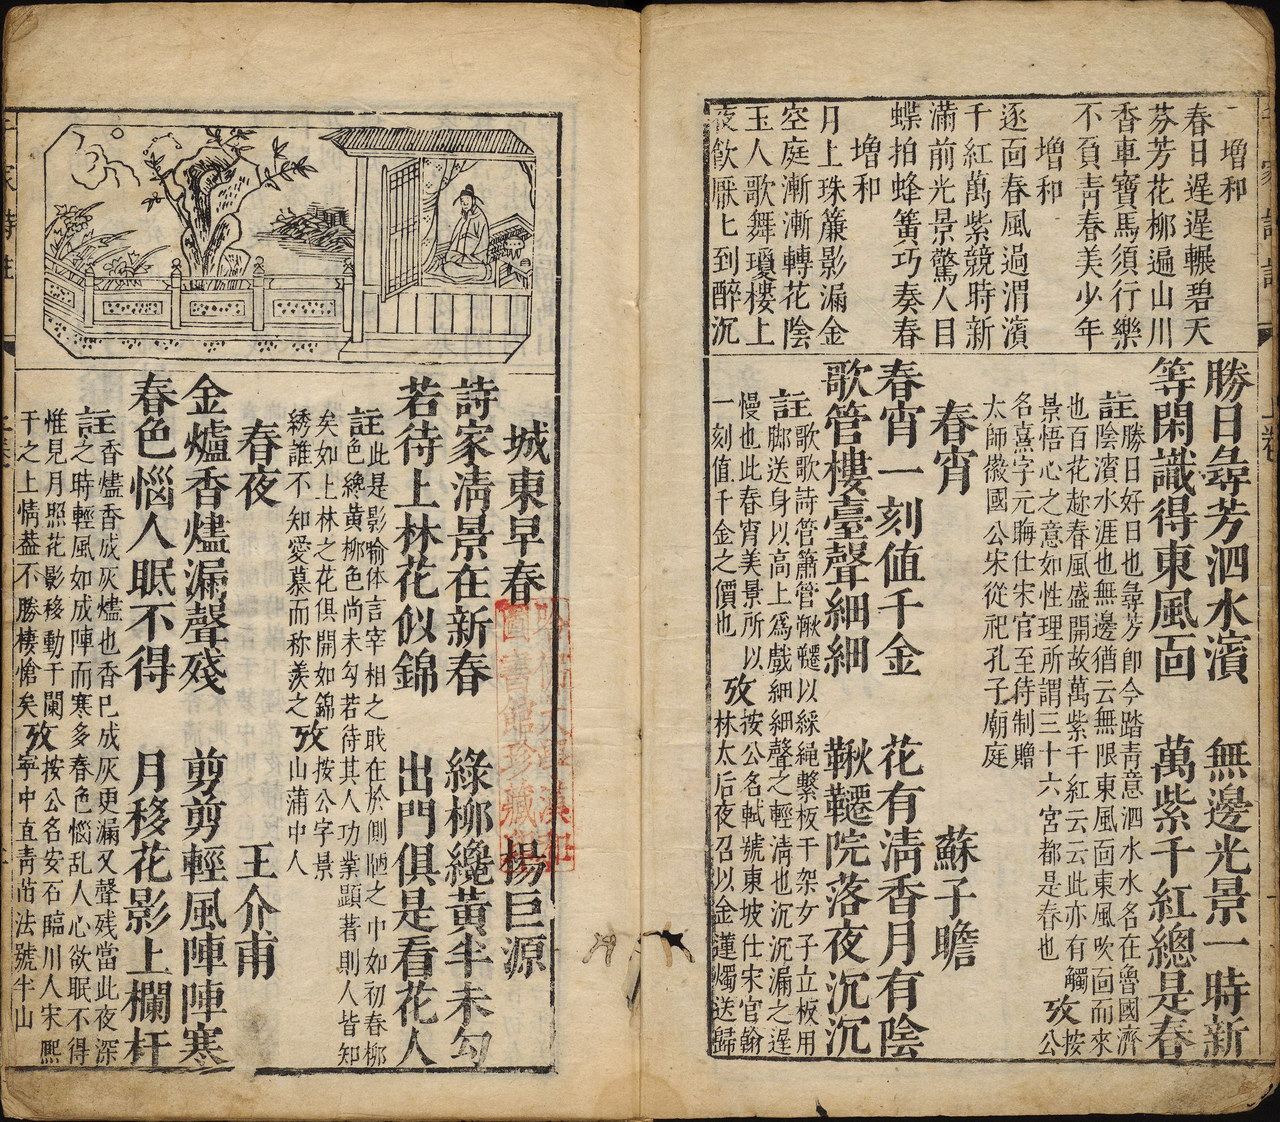 增和
春日遲遲輾碧天
芬芳花柳遍山川
香車寶馬須行樂
不負靑春美少年
增和
逐面春風過渭濱
千紅萬紫競時新
滿前光景驚人目
蝶拍蜂簧巧奏春
增和
月上珠簾影漏金
空庭漸漸轉花陰
玉人歌舞瓊樓上
夜飲厭厭到醉沉
勝日尋芳泗水濱　無邊光景一時新
等閑識得東風面　萬紫千紅總是春
註勝日好日也尋芳卽今踏靑意泗水水名在魯國濟
陰濱水涯也無邊猶云無限東風面東風吹面而來
也百花趂春風盛開故萬紫千紅云云此亦有觸
景悟心之意如性理所謂三十六宮都是春也
攷按公
名熹字元晦仕宋官至侍制贈
太師徽國公宋從祀孔子廟庭
春宵　蘇子瞻
春宵一刻值千金　花有淸香月有陰
歌管樓臺聲細細　鞦韆院落夜沉沉
註歌歌詩管簫管鞦韆以綵繩繫板干架女子立板用
脚送身以高上爲戲細細聲之輕淸也沉沉漏之遲
慢也此春宵美景所以
一刻值千金之價也
攷按公名軾號東坡仕宋官翰
林太后夜召以金蓮燭送歸
城東早春　楊巨源
詩家淸景在新春　綠柳纔黃半未勻
若待上林花似錦　出門俱是看花人
註此是影喻体言宰相之㪅在於側陋之中如初春柳
色纔黃柳色尚未勻若待其人功業顯著則人皆知
矣如上林之花俱開如錦
綉誰不知愛慕而称羨之
攷按公字景
山蒲中人
春夜　王介甫
金爐香燼漏聲殘　剪剪輕風陣陣寒
春色惱人眠不得　月移花影上欄杆
註香燼香成灰燼也香巳成灰更漏又聲残當此夜深
之時輕風如成陣而寒多春色惱乱人心欲眠不得
惟見月照花影移動于闌
干之上情葢不勝棲愴矣
攷按公名安石臨川人宋熙
寧中直靑苗法號半山
千家詩註
上卷
圖書館珍藏